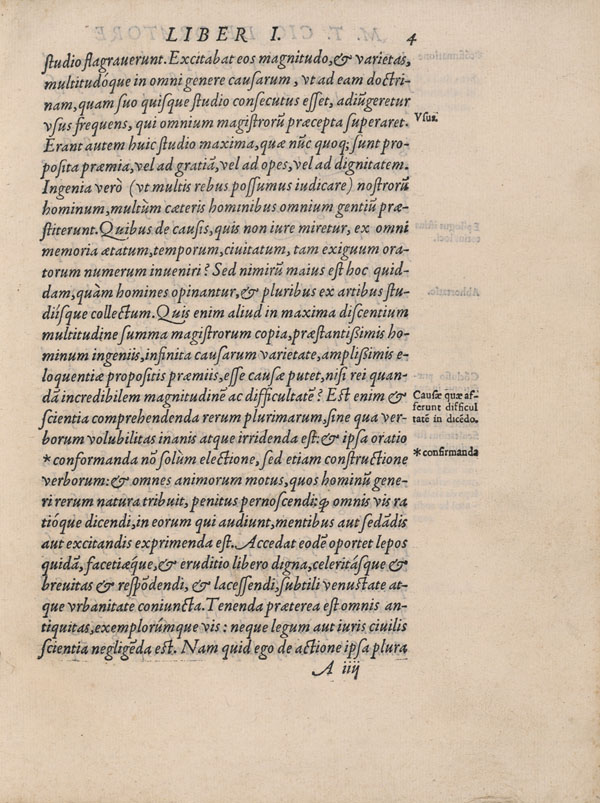 LIBER I. 4
studio flagrauerunt. Excitabat eos magnitudo, & varietas,
multitudóque in omni genere causarum, vt ad eam doctri-
nam, quam suo quisque studio consecutus esset, adiũgeretur
vsus frequens, qui omnium magistrorũ præcepta superaret.
Vsus.
Erant autem huic studio maxima, quæ nũc quoq; sunt pro-
posita præmia, vel ad gratiã, vel ad opes, vel ad dignitatem.
Ingenia verò (vt multis rebus possumus iudicare) nostrorũ
hominum, multùm cæteris hominibus omnium gentiũ præ-
stiterunt. Quibus de causis, quis non iure miretur, ex omni
memoria ætatum, temporum, ciuitatum, tam exiguum ora-
torum numerum inueniri? Sed nimirũ maius est hoc quid-
dam, quàm homines opinantur, & pluribus ex artibus stu-
diisque collectum. Quis enim aliud in maxima discentium
multitudine summa magistrorum copia, præstantißimis ho-
minum ingeniis, infinita causarum varietate, amplißimis e-
loquentiæ propositis præmiis, esse causæ putet, nisi rei quan-
dã incredibilem magnitudinẽ ac difficultatẽ? Est enim &
Causæ quæ af-
ferunt difficul
tatẽ in dicẽdo.
scientia comprehendenda rerum plurimarum, sine qua ver-
borum volubilitas inanis atque irridenda est: & ipsa oratio
*conformanda nõ solùm electione, sed etiam constructione
*confirmanda
verborum: & omnes animorum motus, quos hominũ gene-
ri rerum natura tribuit, penitus pernoscendi: ꝙ omnis vis ra
tióque dicendi, in eorum qui audiunt, mentibus aut sedãdis
aut excitandis exprimenda est. Accedat eodẽ oportet lepos
quidã, facetiæque, & eruditio libero digna, celeritásque &
breuitas & respõdendi, & lacessendi, subtili venustate at-
que vrbanitate coniuncta. Tenenda præterea est omnis an-
tiquitas, exemplorúmque vis: neque legum aut iuris ciuilis
scientia negligẽda est. Nam quid ego de actione ipsa plura
A iiij